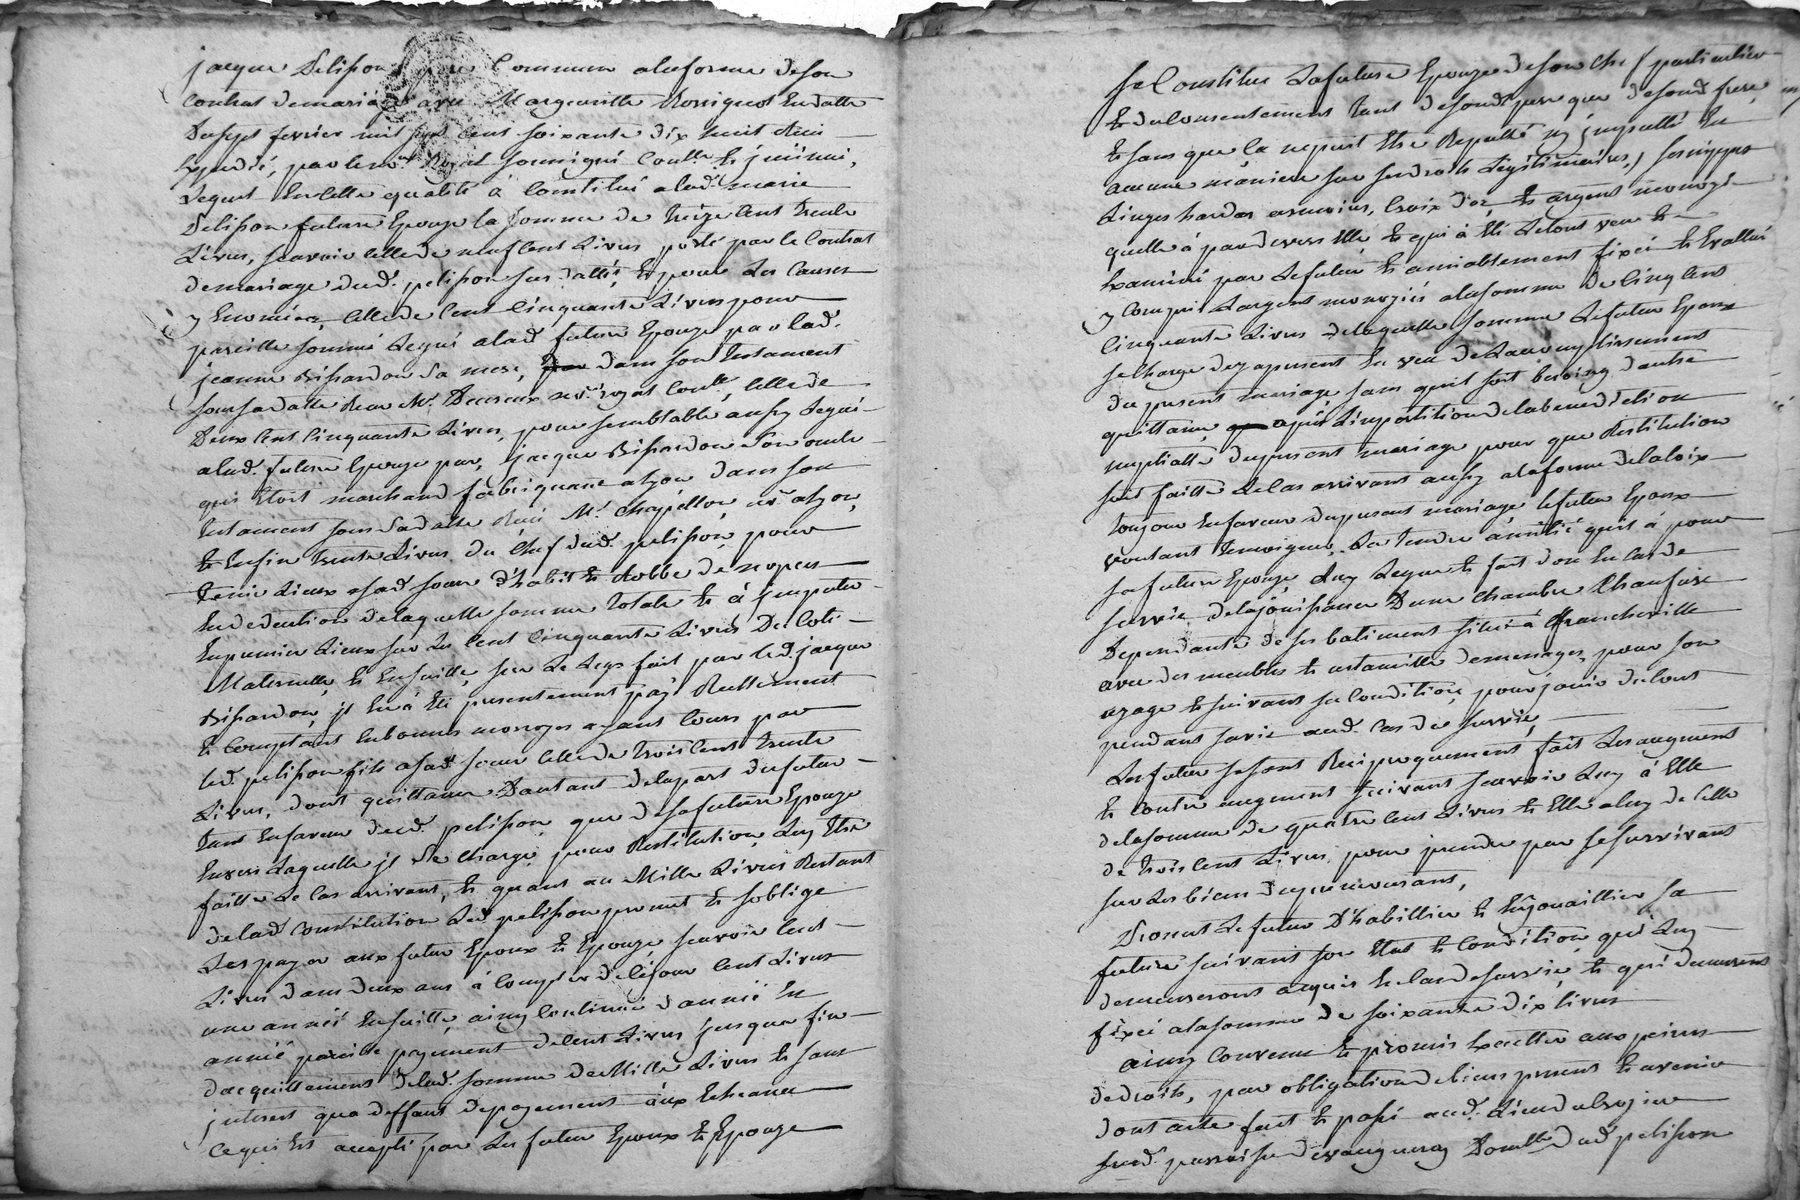 jacque Pelisson pere Commun alaforme deson
Contrat demariage avec Margueritte Rossignol En datte
Dusept fevrier mil sept cent soixante dix huit Reçu
Expedié, par le no.re Royal soussigné
Lequel En Cette qualité à Constitué alad. marie
Pelisson future Epouse la somme de treize Cent trente
Livres, scavoir Celle de neuf Cent Livres porté par le Contrat
demariage dud. pelisson sus datté, Et pour Les Causes
y Enoncées, Celle de Cent Cinquante Livres pour
pareille somme Legué alad. future Epouse par lad.
jeanne Bissardon sa mere, dans son testament
sous sadatte Reçu Me. no.re royal Celle de
Deux Cent Cinquante Livres, pour semblable aussy Legué
alad. future Epouse par, jacque Bissardon son oncle
qui Etoit marchand fabriquant alyon dans son
testament sous sadatte Reçu Me. Chapellon no.re alyon,
Et Enfin trente Livres du Chef dud. pelisson, pour
tenir Lieux asad. soeur d'habit Et Robbe de nopces
En deduction delaquelle somme totale Et à jmputer
Enpremier Lieux sur Les Cent Cinquante Livres De Coti
Maternelle, Et Ensuitte, sur Le Legs fait par led. jacque
Bissardon, jl En à Eté presentement payé Reellement
Et Comptant Enbonnes monoyes ayant Cours par
led. pelisson fils asad. soeur Celle de trois Cent trente
Livres, dont quittance D'autant delapart dufutur
tant Enfaveur dud. pelisson, que desafuture Epouse
Envers Laquelle jl se Charge, pour Restitution Luy Etre
faitte Le Cas arrivant, Et quant au Mille Livres Restant
delad. Constitution Led. pelisson promet Et soblige
Les payer aux futur Epoux Et Epouse scavoir Cent
Livres dans deux ans à Compter de Cejour Cent Livres
une année Ensuitte, ainsy Continué d'année En
année pareille payement de Cent Livres jusques fin
dacquittement delad. somme de Mille Livres Et sans
jnterest qua deffaut de payement aux Echeance
Ce qui Est accepté par Les futur Epoux Et Epouse
se Constitue Lafuture Epouse deson Chef particulier
Et du Consentement tant desond. pere que desond. frere
Et sans que Ca nepuit Etre Reputté ny jmputtés En
aucune maniere sur ses droits Legitimaires, ses nippes
Linges hardes Croix d'or, Et argent monoyé
quelle à pardevers Elle, Et qui à Eté Letout veu Et
Examiné par Lefutur Et amiablement fixée Et Evallué
y Compri Largent monoyés alasomme de Cinq Cent
Cinquante Livres delaquelle somme Lefutur Epoux
secharge deyapresent En veu del'accomplissement
du present mariage, sans quil soit besoing dautre
quittance, après Limpartition delabenediction
nuptialle dupresent mariage pour que Restitution
soit faitte Le Cas arrivant aussy alaforme delaloix
toujour Enfaveur dupresent mariage lefutur Epoux
voulant temoigner, La tendre amitié quil à pour
safuture Epouse Luy Legue Et fait don En Cas de
survie delajouissance D'une Chambre Chaufure
Dependante de ses batiment situé à francheville
avec des meubles Et ustancille demenages, pour son
uzage Et suivant sa Condition, pour jouir dutout
pendant savie aud. Cas de survie,
Lesfutur sesont Reciproquement fait Les augment
Et Contre augment suivant scavoir Luy à Elle
delasomme de quatre Cent Livres Et Elle aluy de Celle
de trois Cent Livres, pour prendre par Lesurvivant
sur Les biens dupremourant,
Promet Lefutur D'habillier Et Enjouaillier sa
future suivant son Etat Et Condition, qui Luy
demeurerons acquis En Cas de survie, Et qui demeurent
fixée alasomme de soixante dix livres
ainsy Convenu Et promis Executter aux peines
dedroits, par obligation de biens present Et avenir
dont acte fait Et passé aud. Lieu
susd. parroisse devaugneray Domlle. dud. pelisson